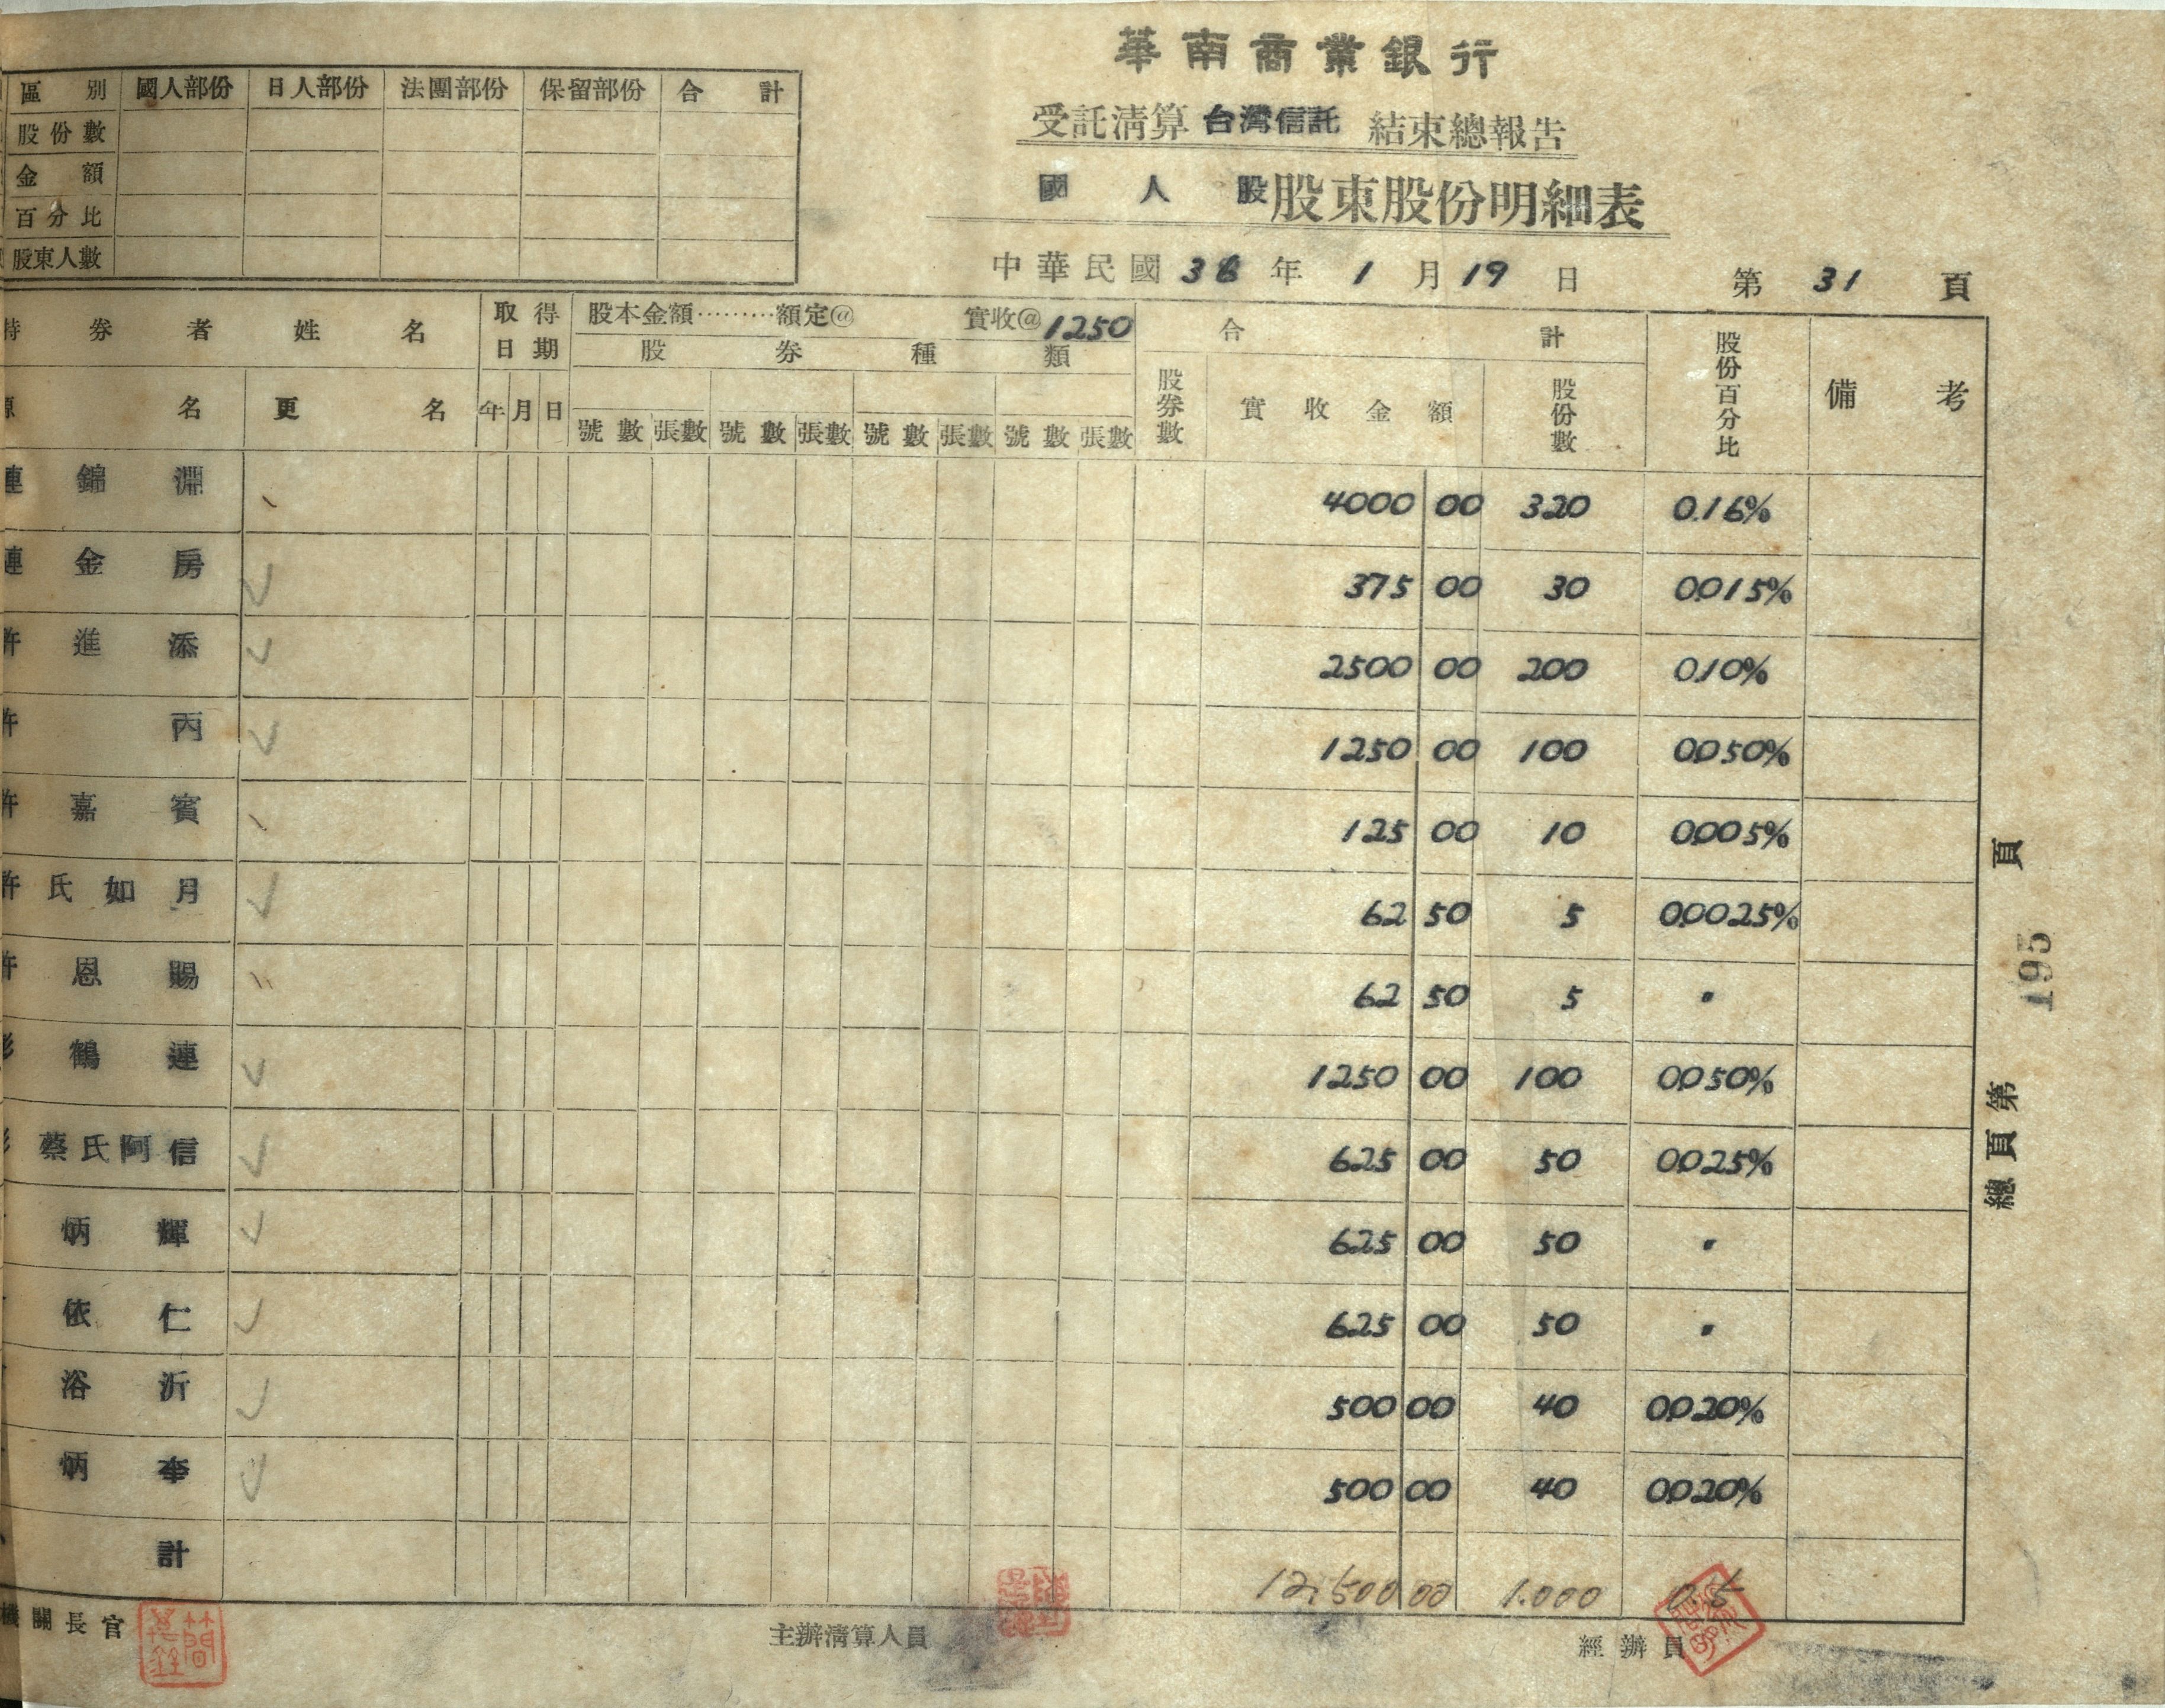 華南商業銀行
受託清算 台灣信託 結束總報告
國人股 股東股份明細表
中華民國 36 年 1 月 19 日 第 31 頁
區別 國人部份 日人部份 法團部份 保留部份 合計
股份數
金額
百分比
股東人數
持券者姓名 取得日期 股本金額………額定@ 實收@ 1250 合計 股份百分比 備考
股券種類
原名 更名 年 月 日 號數 張數 號數 張數 號數 張數 號數 張數 股券數 實收金額 股份數
連錦淵 4000 00 320 0.16%
連金房 375 00 30 0.015%
許進添 2500 00 200 0.10%
許丙 1250 00 100 0.050%
許嘉賓 125 00 10 0.005%
許氏如月 62 50 5 0.0025%
許恩賜 62 50 5 〃
彭鶴連 1250 00 100 0.050%
彭蔡氏阿信 625 00 50 0.025%
炳輝 625 00 50 〃
依仁 625 00 50 〃
浴沂 500 00 40 0.020%
炳奎 500 00 40 0.020%
計 12,500 00 1.000 0.5
機關長官 主辦清算人員 經辦員
總頁第 195 頁